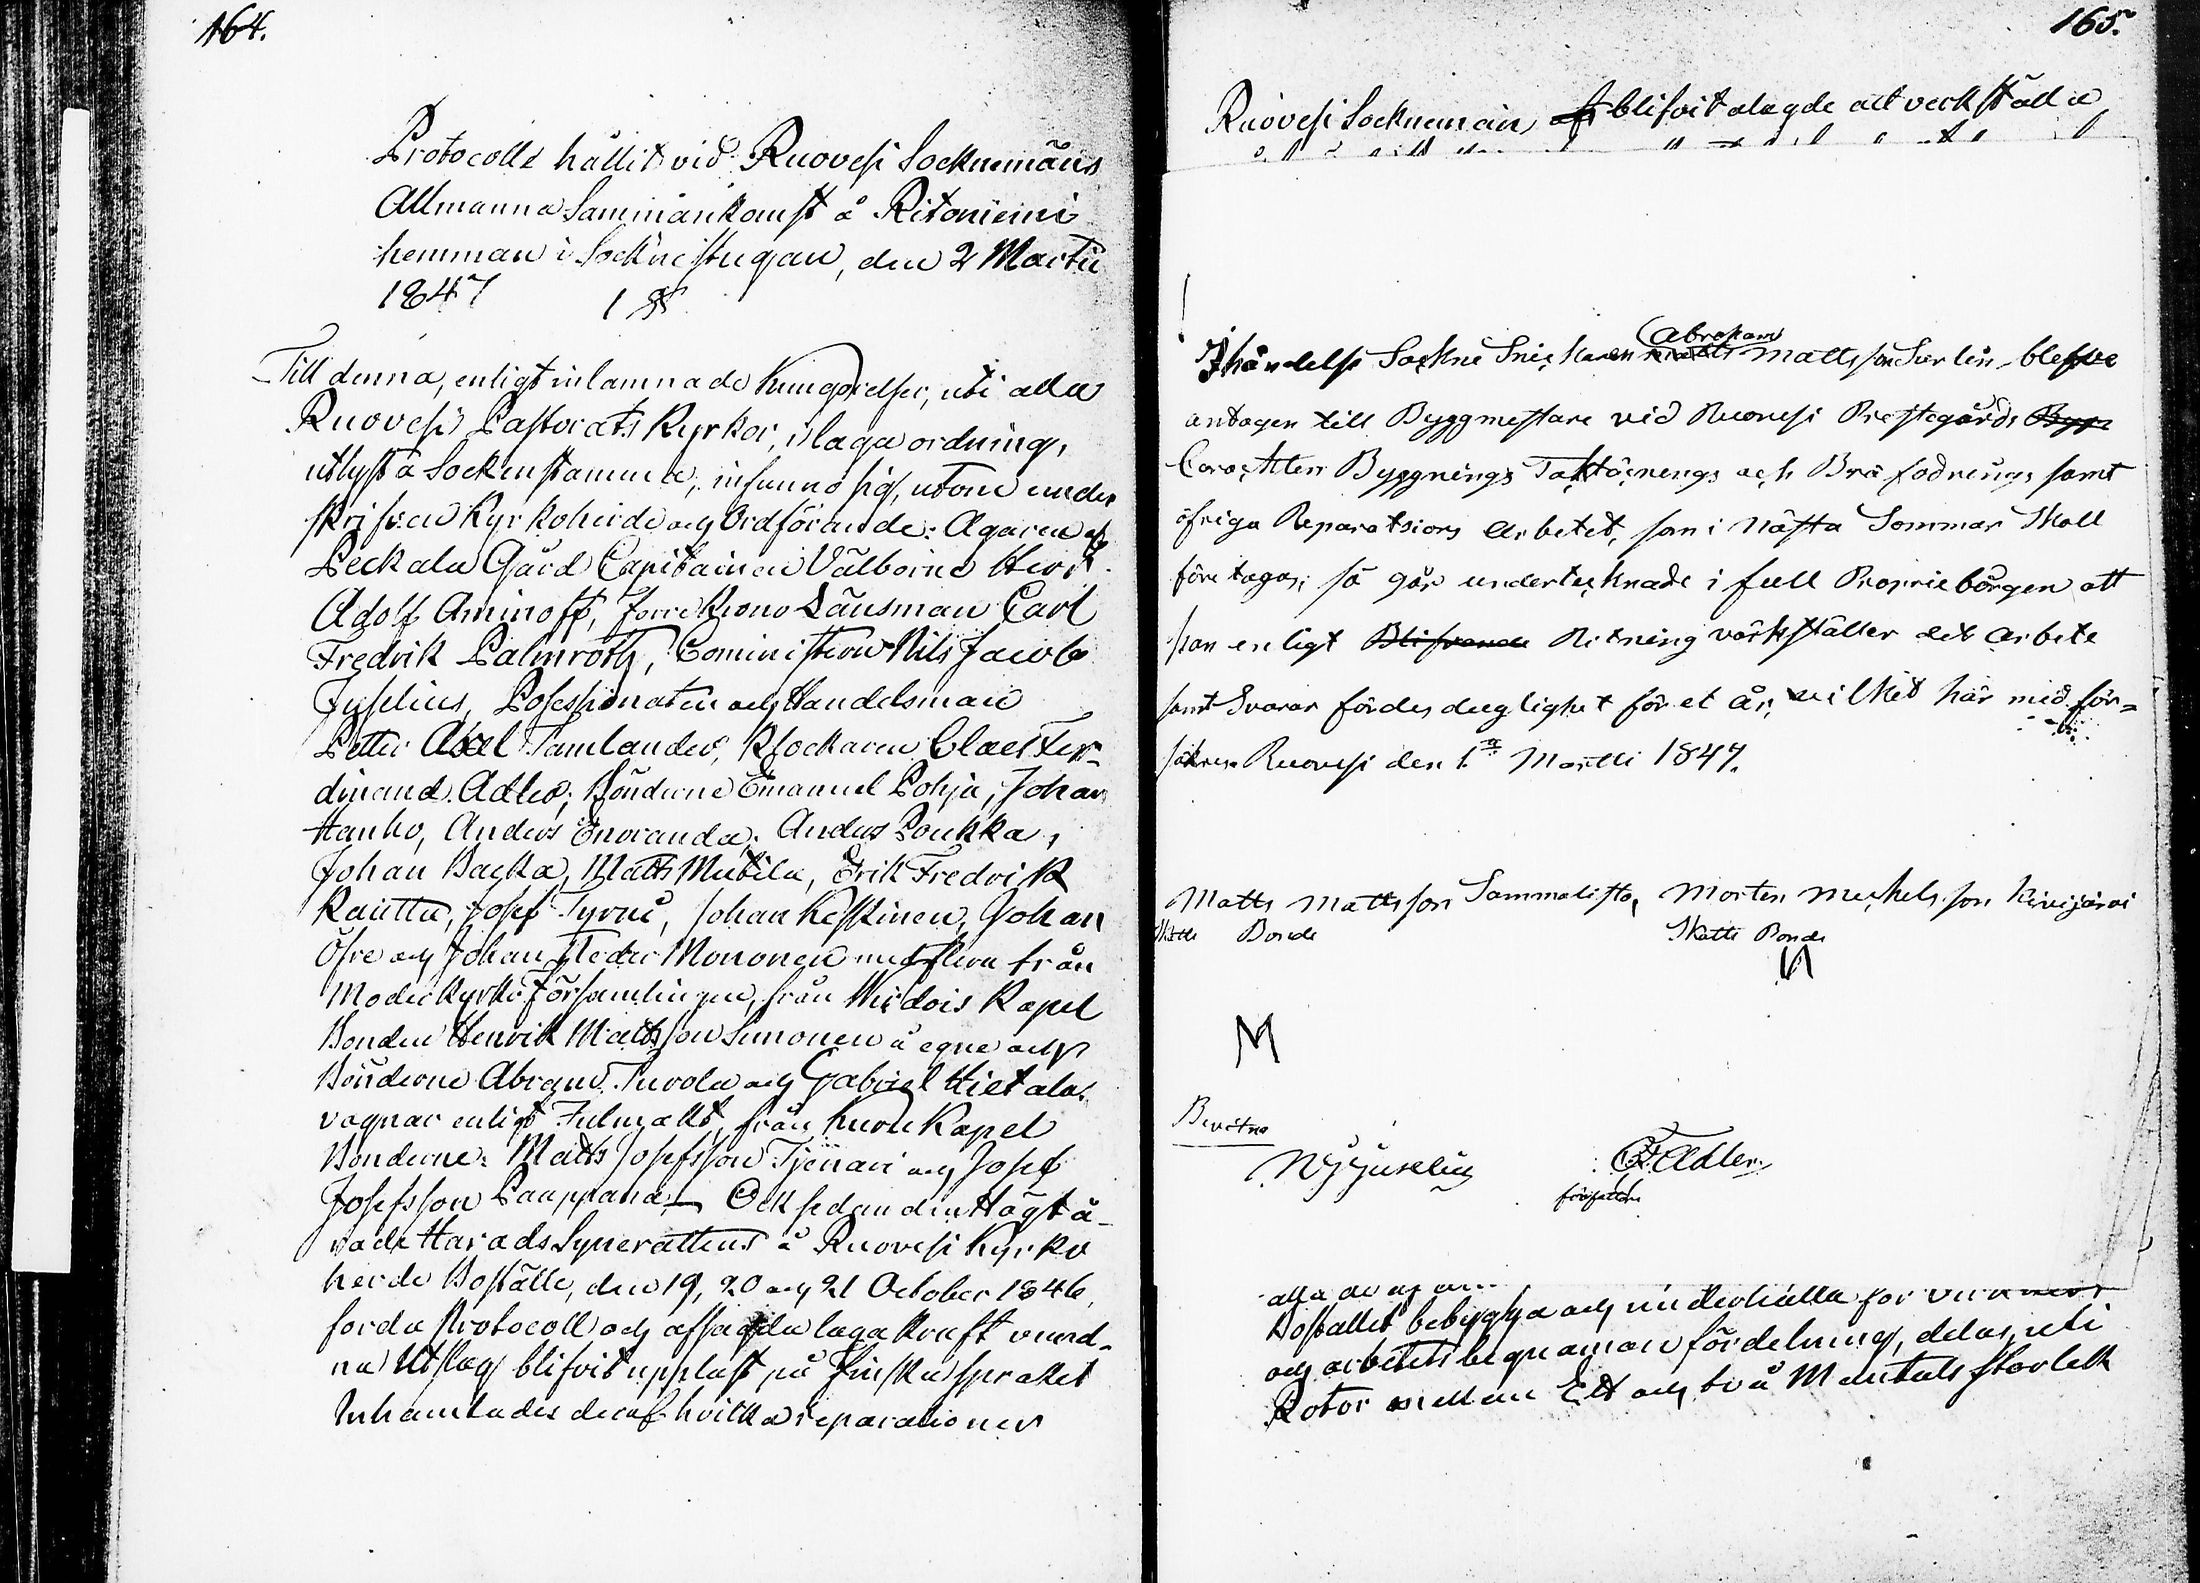 164.
Protocoll hållit vid Ruovesi Socknemäns
Allmänna Sammankomst å Ritoniemi
hemman i Socknestugan, den 2 Martii
1847 1 §
Till denna, enligt inlamnade Kungörelser, uti alla
Ruovesi Pastorats Kyrkor, i laga ordning,
utlysta Sockenstamma, infunno sig, utom under
skrifven Kyrkoherde och Ordförande: Agaren af
Peckala Gård Capitainen Välborne Herr
Adolf Aminoff, förre Krono Länsman Carl
Fredrik Palmroth, Comministern Nils Jacob
Juselius, Possessionaten och Handelsman
Petter Axel Tamlander, Klockaren Claes Fer-
dinand Adler; Bönderne Emanuel Pohja, Johan
Hanho, Anders Enoranda, Anders Poukka,
Johan Backa, Matts Mutila, Erik Fredrik
Rautta, Josef Tyrni, Johan Keskinen, Johan
Öfre och Johan Peder Mononen med flera från
Moderkyrko Församlingen, från Wirdois Kapel
Bonden Henrik Mattsson Simonen å egne och
Bönderne Abram Turola och Gabriel Hietala
vagnar enligt Fulmakt, från Kuru Kapel
Bonderne: Matts Josefsson Tjenari och Josef
Josefsson Paappana — Och sedan den Högtä-
rade Harads Syne rättens å Ruovesi Kyrko
herde Boställe, den 19, 20 och 21 October 1846,
forda Protocoll och afsagda laga kraft vund-
na Utslag blifvit uppläst på Finska språket
Inhamtades deraf hvilka reparationer
165.
Ruovesi Sockneman af blifvit alagde att verkställa
Abraham
I händelse Sockne Snickaren Matts Mattsson Surlin blefve
antagen till Byggmestare vid Ruovesi Prestegårds Bygg
Caracters Byggnings Taktäcknings och Bräfodrings samt
öfriga Reparations arbetet, som i nästa Sommar Skall
företagas; så går undertecknade i full Proprieborgen att
han enligt Blifvande Ritning värkställer det arbete
samt Svarar för des duglighet för et år, vilket här med för=
säkras Ruovesi den 1.a Martii 1847.
Matts Mattsson Sammalisto, Morten Mickelsson Kivijärvi
Skatte Bonde Skatte Bonde
M
M
Bevitna
N J Juselius C F Adler
författare
Bostallet bebygga och underhålla
och arbetets beqvamare fördelning, delas uti
Rotor mellan Ett och två Mantals storlek